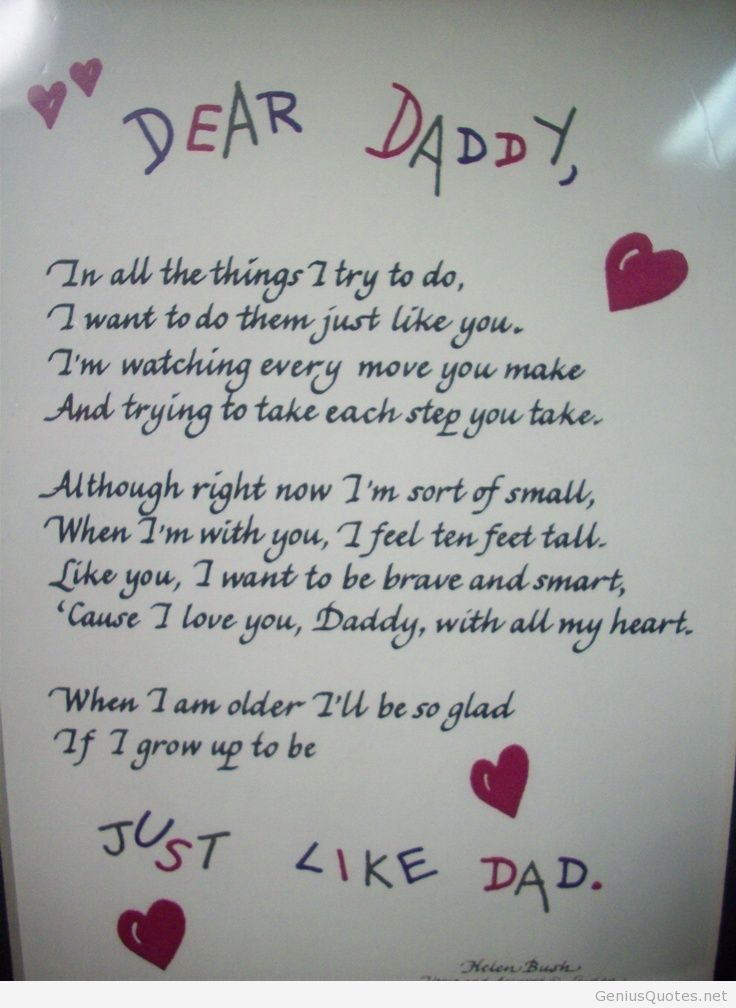 DEAR DADDY,
In all the things I try to do,
I want to do them just like you.
I'm watching every move you make
And trying to take each step you take.
Although right now I'm sort of small,
When I'm with you, I feel ten feet tall.
Like you, I want to be brave and smart,
'Cause I love you, Daddy, with all my heart.
When I am older I'll be so glad
If I grow up to be
JUST LIKE DAD.
Helen Bush
GeniusQuotes.net